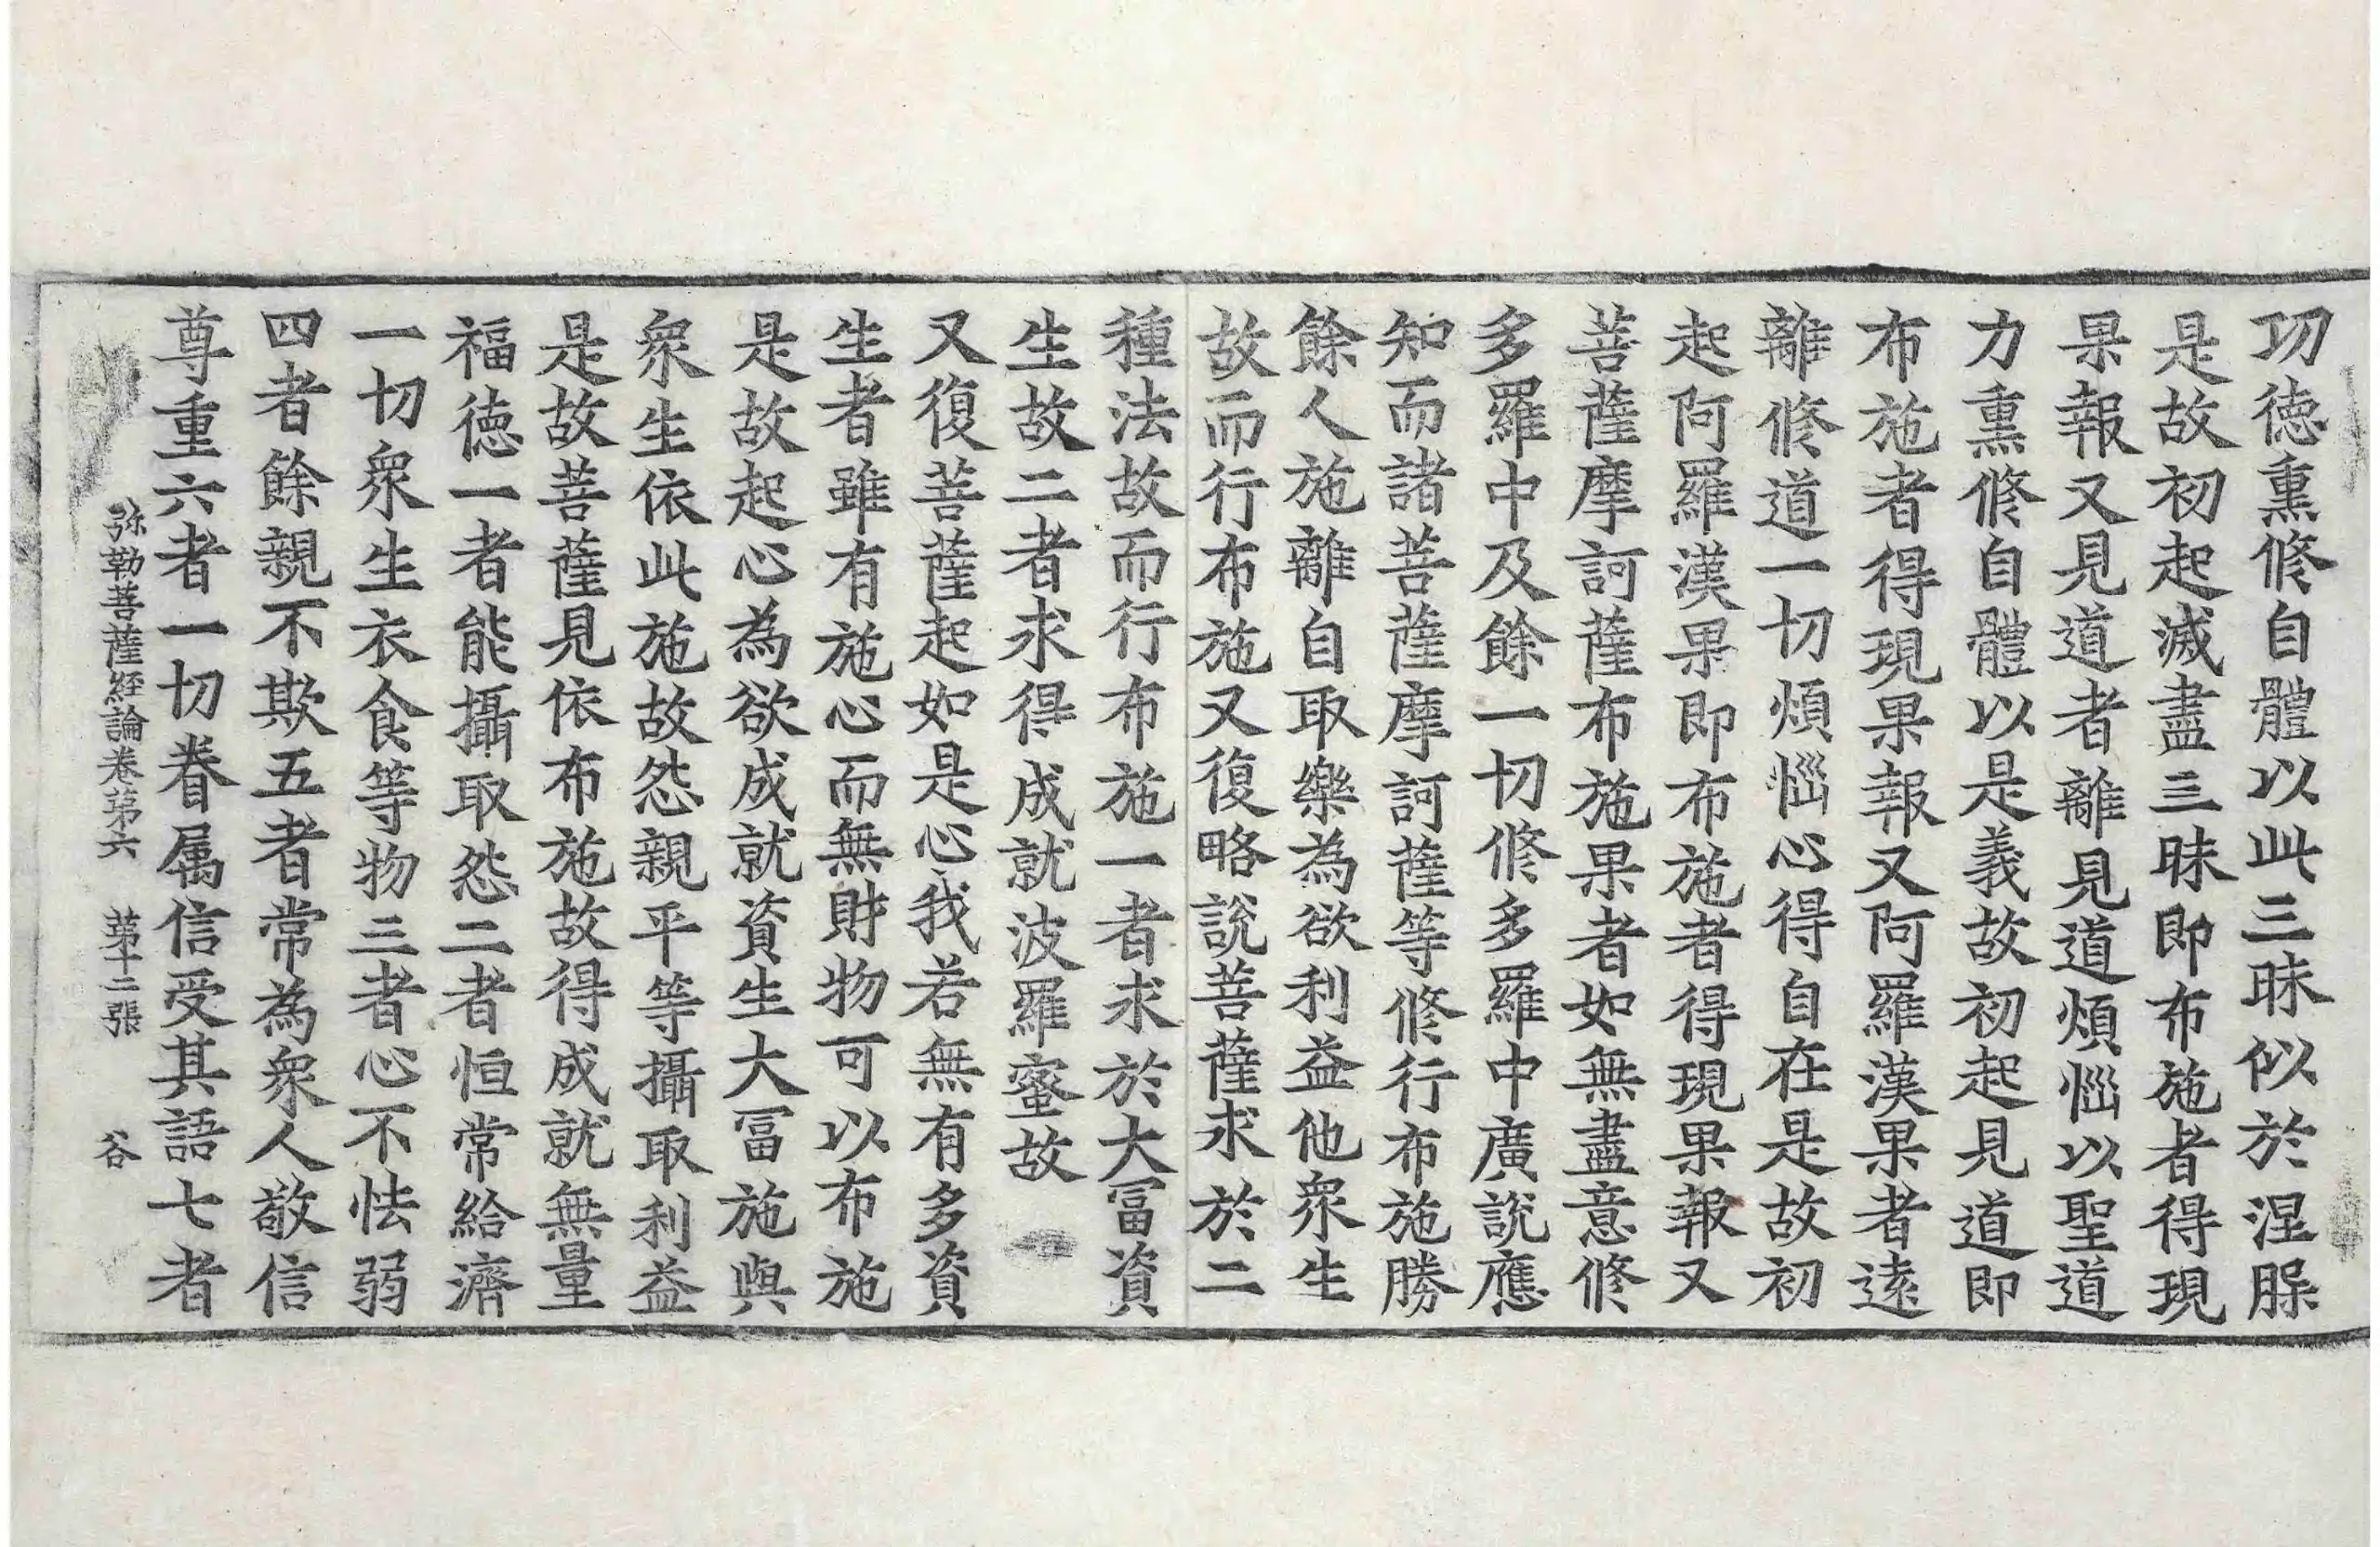 功徳熏修自體以此三昧似於涅脲
是故初起滅盡三昧即布施者得現
果報又見道者離見道煩惱以聖道
力熏修自體以是義故初起見道即
布施者得現果報又阿羅漢果者逺
離修道一切煩惱心得自在是故初
起阿羅漢果即布施者得現果報又
菩薩摩訶薩布施果者如無盡意修
多羅中及餘一切修多羅中廣說應
知而諸菩薩摩訶薩等修行布施勝
餘人施離自取樂為欲利益他衆生
故而行布施又復略說菩薩求於二
種法故而行布施一者求於大冨資
生故二者求得成就波羅蜜故
又復菩薩起如是心我若無有多資
生者雖有施心而無財物可以布施
是故起心為欲成就資生大冨施與
衆生依此施故怨親平等攝取利益
是故菩薩見依布施故得成就無量
福徳一者能攝取怨二者恒常給濟
一切衆生衣食等物三者心不怯弱
四者餘親不欺五者常為衆人敬信
尊重六者一切眷属信受其語七者
弥勒菩薩経論卷第六　第十二張　谷